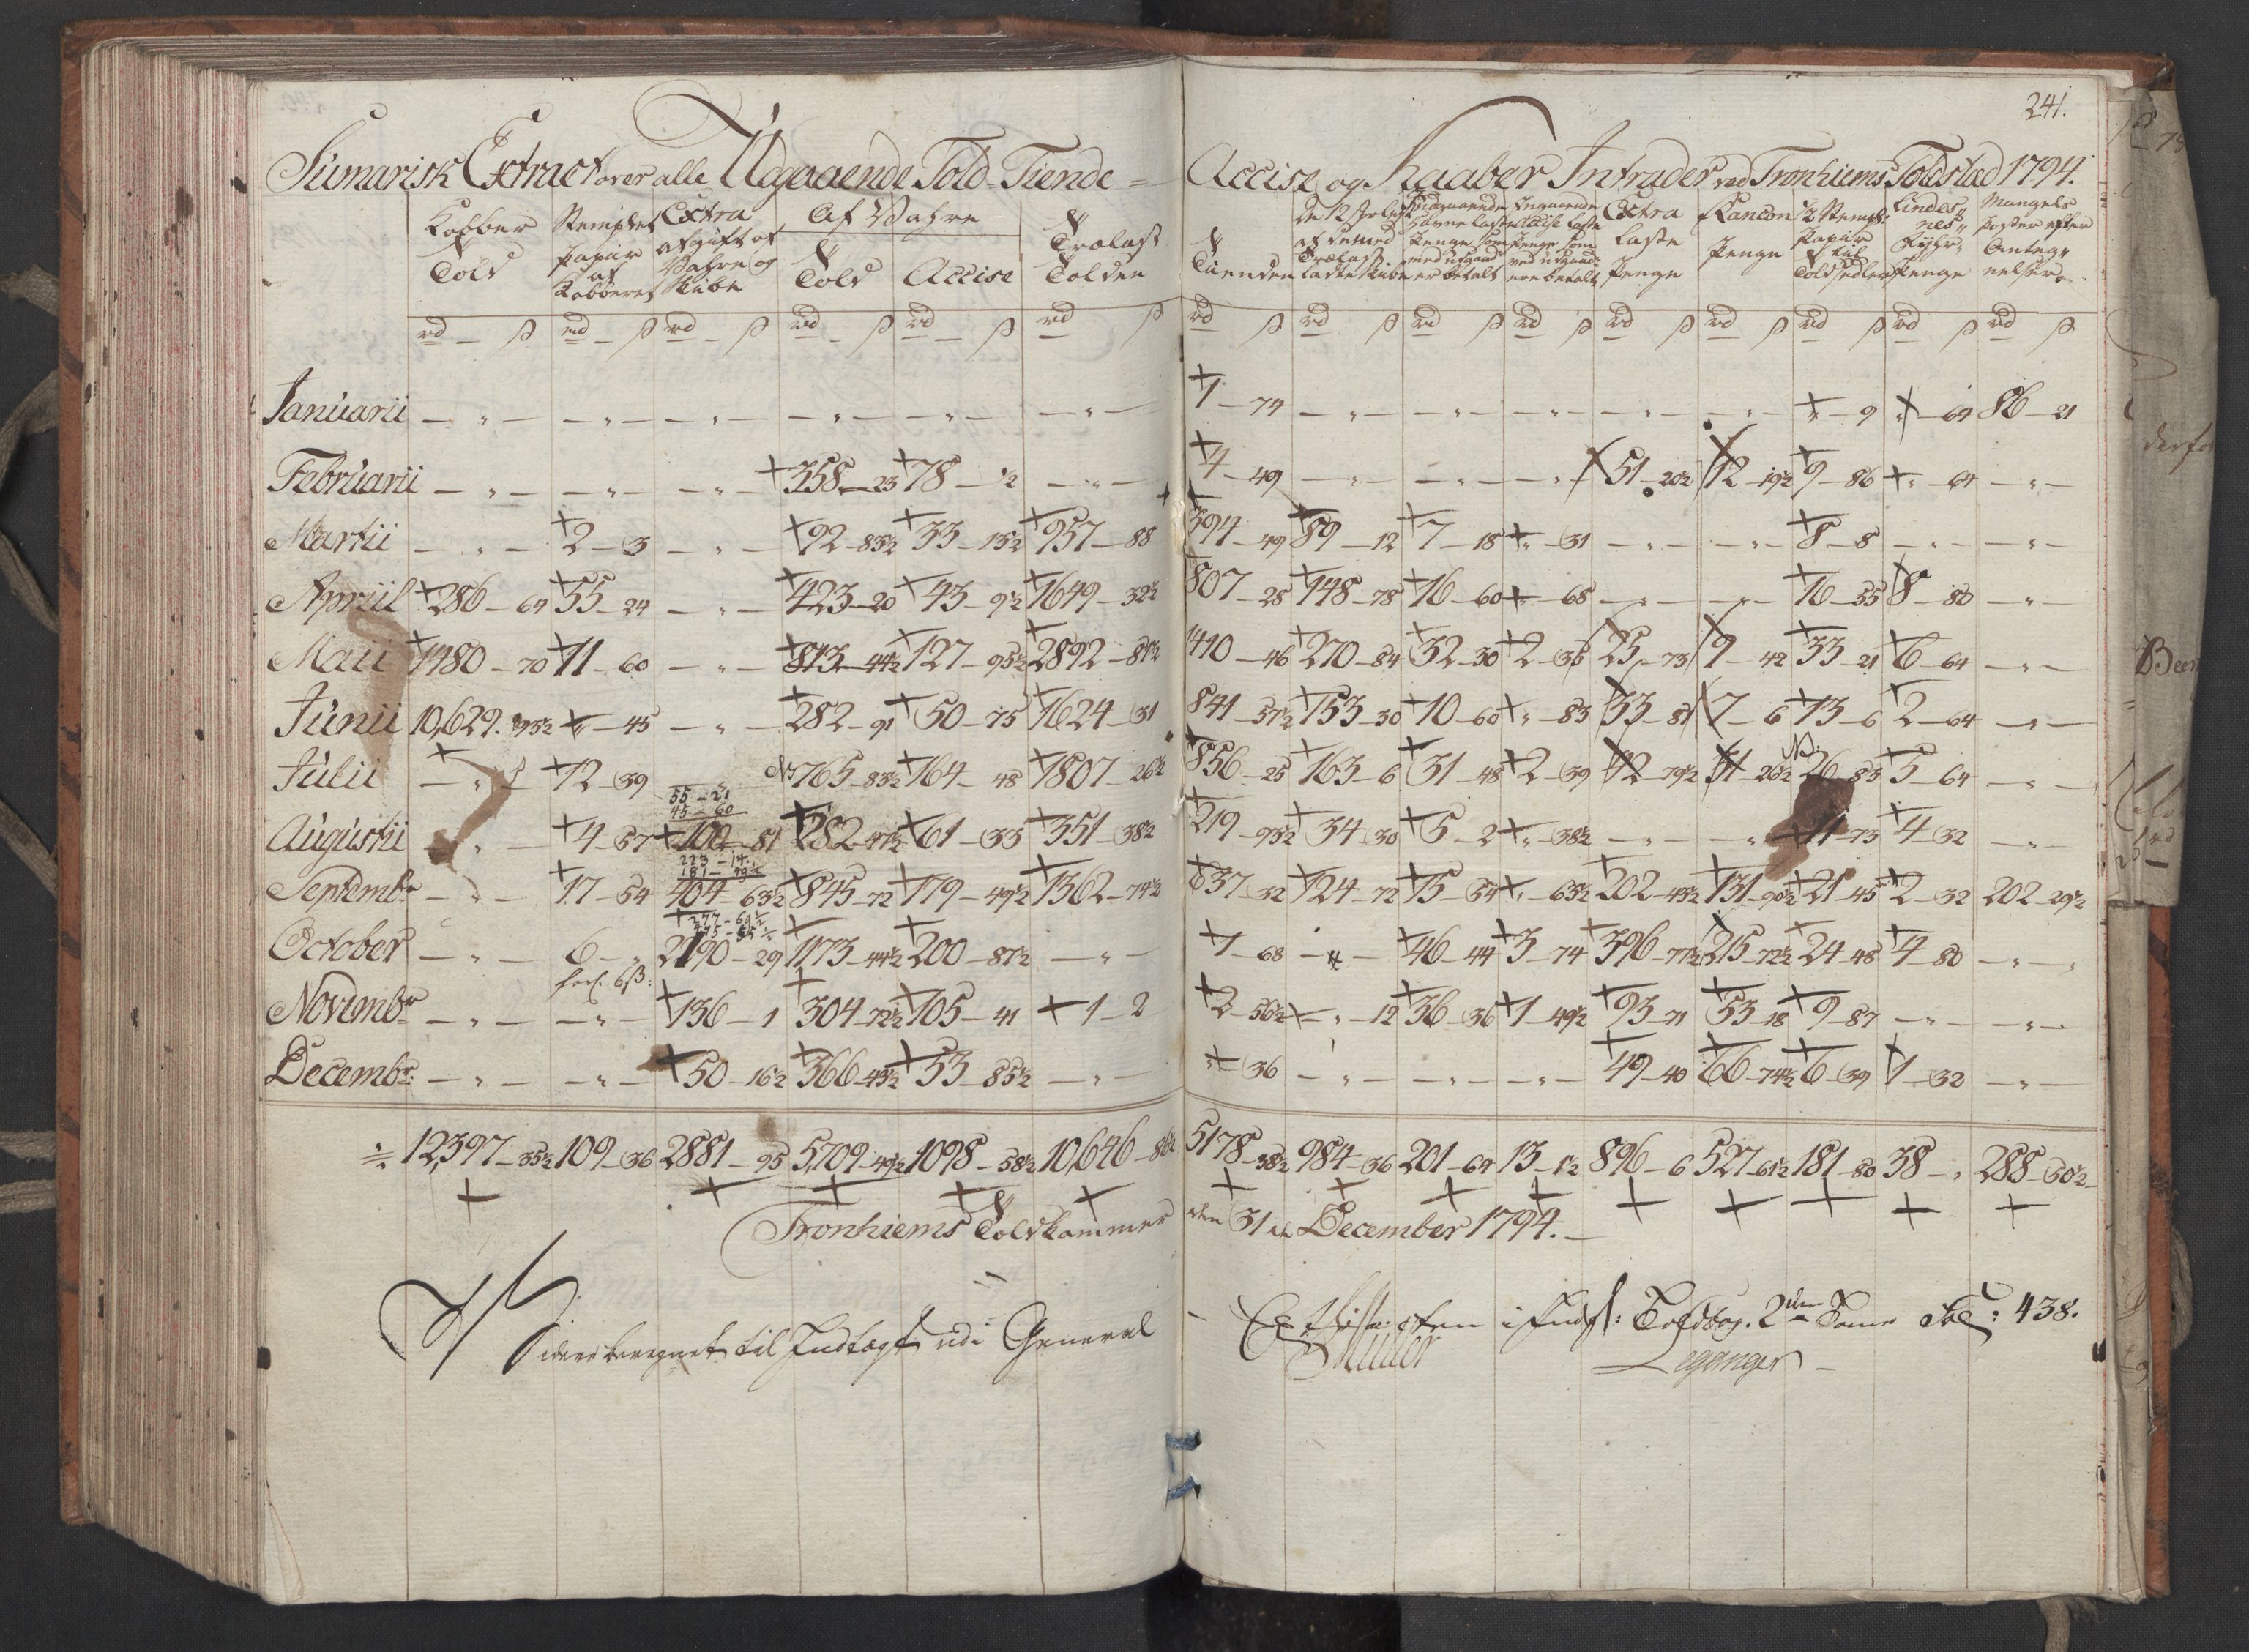 241.
Sumarisk Extract over alle Udgaaende Told-Tiende = Accise og Kaaber Intrader ved Tronhiems Toldstæd 1794.
Kobber Told | Stemplet papir af Kobberet | Extra afgift af Wahre og Skibe | Af Wahre Told | Accise | Trælast Tolden | Tienden | Extra Laste Penge | Rancon Penge | 1/2 Stempl: Papir til Toldsedler | Lindes- nes Fyhr- Penge | Mangels Poster efter Anteg- nelser
rd ß rd ß rd ß rd ß rd ß rd ß rd ß rd ß rd ß rd ß rd ß rd ß rd ß rd ß rd ß
Januarii — " — — " — — " — — " — — " — — " — 1 - 74 — " — — " — — " — — " — — " — " - 9 " - 64 86 - 21
Februarii — " — — " — — " — 358 - 23 78 - 1/2 — " — 4 - 49 — " — — " — — " — 51 - 20 1/2 12 - 19 1/2 9 - 86 " - 64 — " —
Martii — " — 2 - 3 — " — 92 - 83 1/2 33 - 15 1/2 957 - 88 394 - 49 89 - 12 7 - 18 " - 31 — " — — " — 8 - 8 — " — — " —
Apriil 286 - 64 55 - 24 — " — 423 - 20 43 - 9 1/2 1649 - 32 1/2 807 - 28 148 - 78 16 - 60 " - 68 — " — — " — 16 - 55 8 - 80 — " —
Maii 1480 - 70 11 - 60 — " — 813 - 44 1/2 127 - 95 1/2 2892 - 81 1/2 1410 - 46 270 - 84 32 - 30 2 - 36 25 - 73 9 - 42 33 - 21 6 - 64 — " —
Junii 10,629. 93 1/2 " - 45 — " — 282 - 91 50 - 75 1624 - 31 841 - 57 1/2 153 - 30 10 - 60 " - 83 33 - 81 7 - 6 13 - 6 2 - 64 — " —
Julii — " — 12 - 39 — " — 765 - 83 1/2 164 - 48 1807 - 26 1/2 856 - 25 163 - 6 31 - 48 2 - 39 42 - 79 1/2 31 - 26 1/2 26 - 83 5 - 64 — " —
55 - 21
45 - 60
Augustii — " — 4 - 57 100 - 81 282 - 47 1/2 61 - 33 351 - 38 1/2 219 - 93 1/2 34 - 30 5 - 2 " - 38 1/2 — " — — " — 11 - 73 4 - 32 — " —
223 - 14.
181 - 49 1/2
Septembr — " — 17 - 54 404 - 63 1/2 845 - 72 179 - 49 1/2 1362 - 74 1/2 637 - 32 124 - 72 15 - 54 " - 63 1/2 202 - 43 1/2 131 - 90 1/2 21 - 45 2 - 32 202 - 29 1/2
October — " — 6 - " 2190 - 29 1173 - 44 1/2 200 - 87 1/2 — " — 1 - 68 — " — 46 - 44 3 - 74 396 - 77 1/2 215 - 72 1/2 24 - 48 4 - 80 — " —
Novembr — " — — " — 136 - 1 304 - 72 1/2 105 - 41 1 - 2 2 - 56 1/2 " - 12 36 - 36 1 - 49 1/2 93 - 71 53 - 18 9 - 87 — " — — " —
Decembr: — " — — " — 50 - 16 1/2 366 - 43 1/2 53 - 85 1/2 — " — " - 36 — " — — " — — " — 49 - 40 66 - 74 1/2 6 - 39 1 - 32 — " —
12,397 - 35 1/2 109 - 36 2881 - 95 5,709 - 49 1/2 1098 - 58 1/2 10,646 - 86 1/2 5178 - 38 1/2 984 - 36 201 - 64 13 - 1/2 896 - 6 527 - 61 1/2 181 - 80 38 - " 288 - 50 1/2
Tronhiems Toldkammer den 31 te December 1794.
beregnet til Indtægt udi General Extracten i Indf: Toldbog. 2den Tome Fol: 438.
Müller Leganger